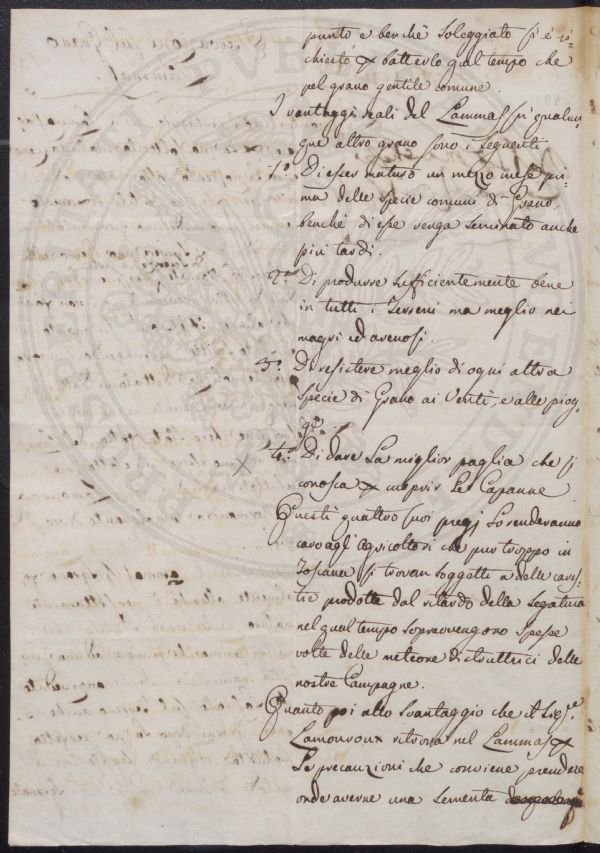 punto e benchè soleggiato si è ri-
chiesto px batterlo qual tempo che
pel grano gentile comune.
I vantaggi reali del Lammas su qualun-
que altro grano sono i seguenti
1.º Di esser maturo un mezzo mese pri-
ma delle specie comuni di Grano,
benchè di esse venga seminato anche
più tardi.
2.º Di produrre sufficientemente bene
in tutti i Terreni ma meglio nei
magri ed arenosi.
3.º Di resistere meglio di ogni altra
specie di Grano ai Venti, e alle piog-
ge.
4.º Di dare la miglior paglia che si
conosca px coprir le Capanne
Questi quattro suoi pregj lo renderanno
caro agl'Agricoltori che pur troppo in
Toscana si trovan soggetti a delle cares-
tie prodotte dal ritardo della Segatura
nel qual tempo sopravvengono spesse
volte delle meteore distruttrici delle
nostre Campagne.
Quanto poi allo svantaggio che il Sig.re
Lamouroux ritrova nel Lammas px
le precauzioni che conviene prendere
onde averne una sementa